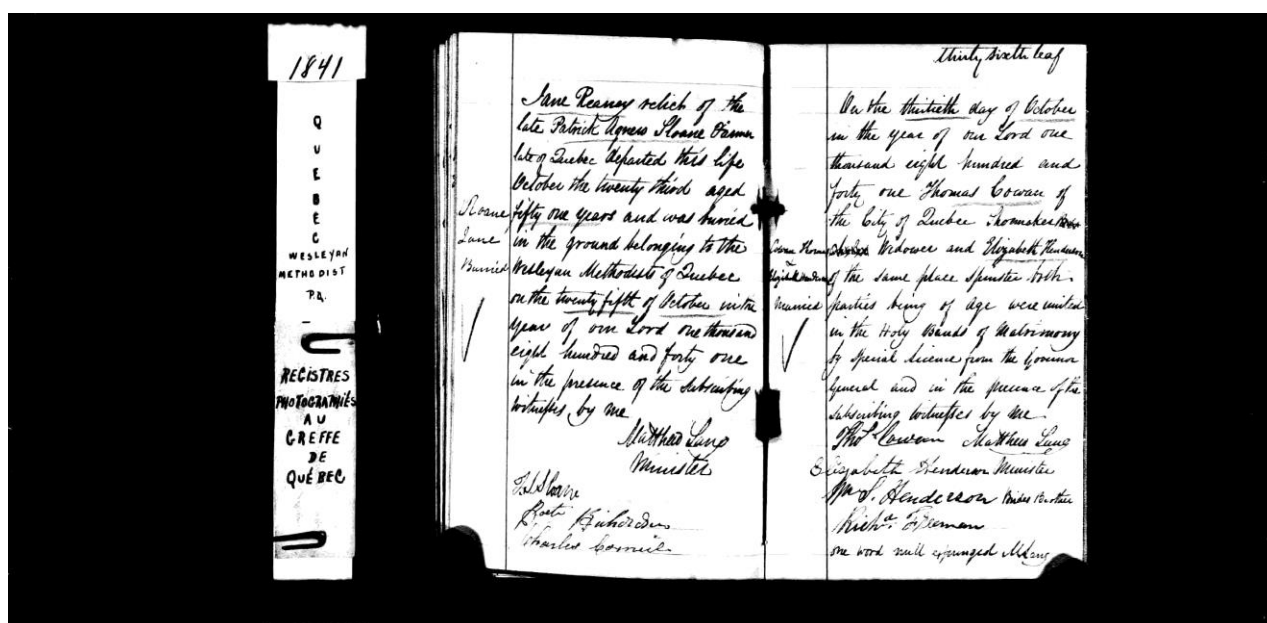 1841
QUEBEC
WESLEYAN
METHODIST
P.Q.
REGISTRES
PHOTOGRAPHIÉS
AU
GREFFE
DE
QUÉBEC
Jane Reaney relict of the
late Patrick Agnew Sloane Farmer
late of Quebec departed this life
October the twenty third aged
fifty one years and was buried
in the ground belonging to the
Wesleyan Methodists of Quebec
on the twenty fifth of October in the
year of our Lord one thousand
eight hundred and forty one
in the presence of the subscribing
witnesses by me
Matthew Lang
Minister
Sloane
Richardson
Charles
Jane
Buried
thirty sixth leaf
On the thirtieth day of October
in the year of our Lord one
thousand eight hundred and
forty one Thomas Cowan of
the City of Quebec Shoemaker
Widower and Elizabeth Henderson
of the same place Spinster both
parties being of age were united
in the Holy Bands of Matrimony
by Special Licence from the Govinor
General and in the presence of the
subscribing witnesses by me
Thos Cowan Matthew Lang
Elizabeth Henderson Minister
Wm S. Henderson Brides Brother
Richd. Freeman
one word null expunged M Lang
Cowan Thomas
&
Elizabeth Henderson
Married